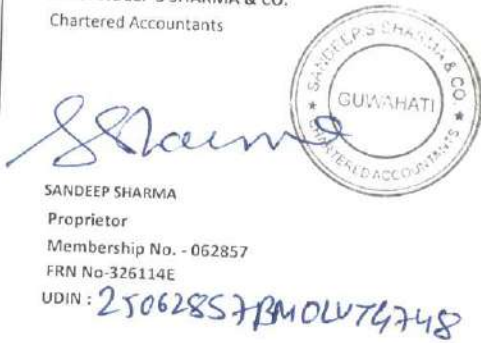 SHARMA & CO.
Chartered Accountants
SANDEEP S SHARMA & CO.
GUWAHATI
★ CHARTERED ACCOUNTANTS ★
SSharma
SANDEEP SHARMA
Proprietor
Membership No. - 062857
FRN No-326114E
UDIN : 25062857BMOLVT4748